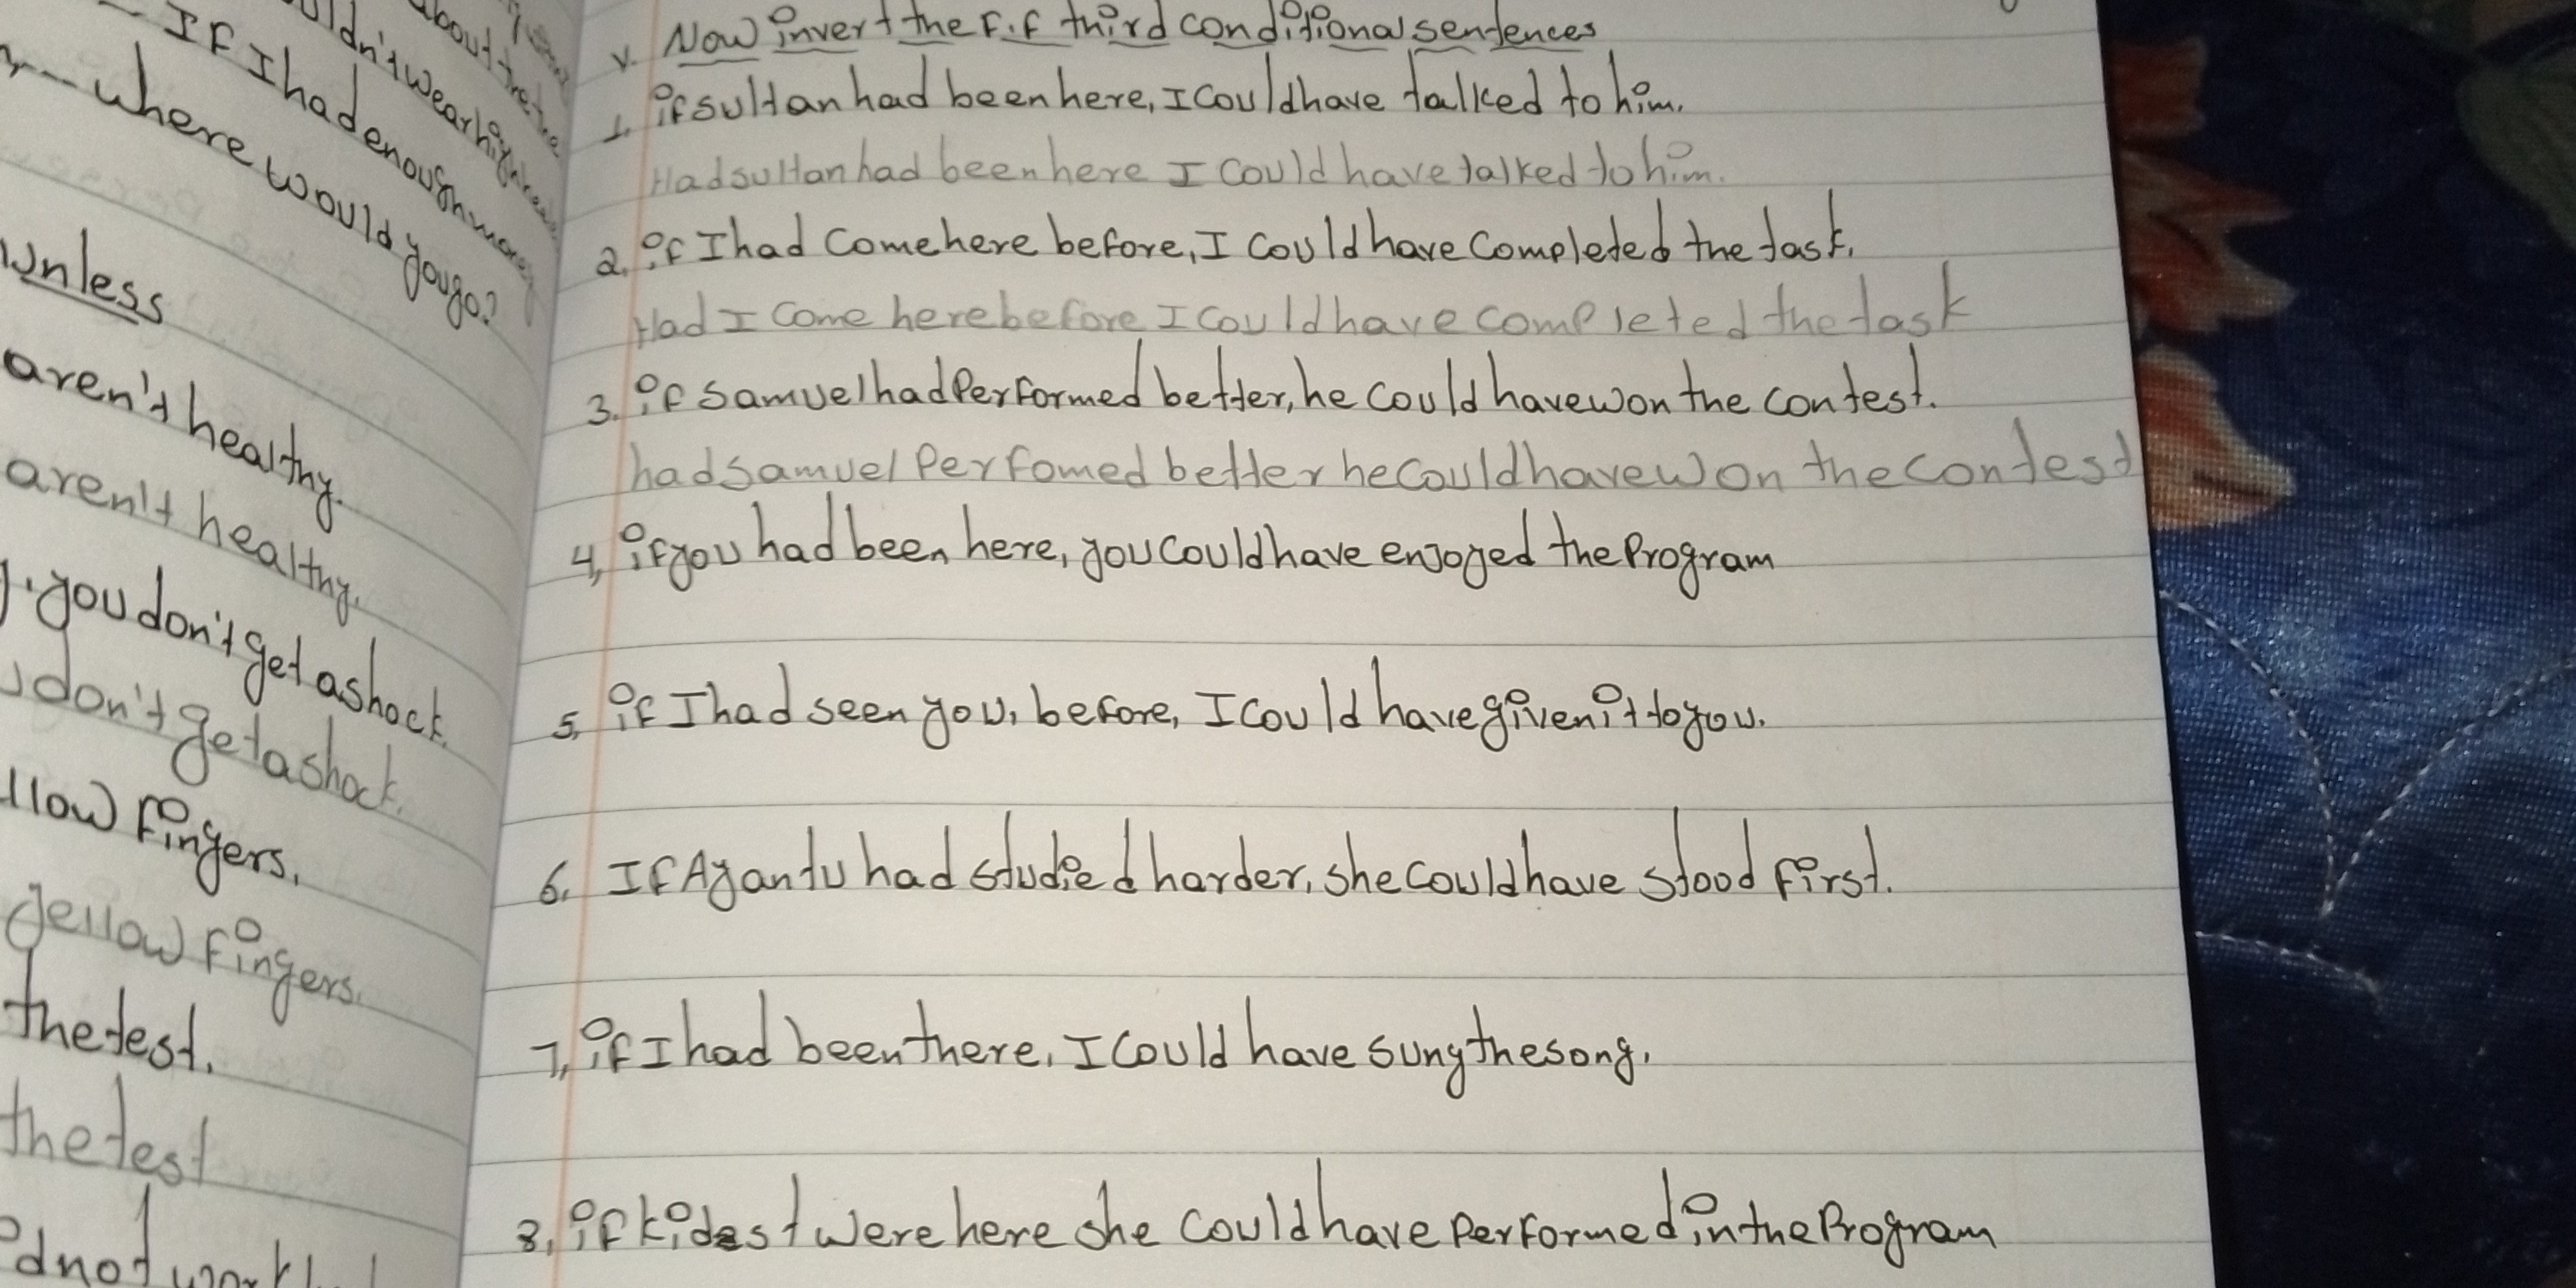 If I had enough
where would you go?
Unless
aren't healthy.
aren't healthy.
you don't get a shock.
don't get a shock.
fingers.
yellow fingers.
the test.
the test
V. Now invert the F.F third conditional sentences
1. if sultan had been here, I could have talked to him.
Had sultan had been here I could have talked to him.
2. if I had come here before, I could have completed the task.
Had I come here before I could have completed the task
3. if samuel had performed better, he could have won the contest.
had samuel perfomed better he could have won the contest
4, if you had been here, you could have enjoyed the program
5, if I had seen you, before, I could have given it to you.
6. If Ayantu had studied harder, she could have stood first.
7, if I had been there, I could have sung the song.
8, if kidest were here she could have performed in the program